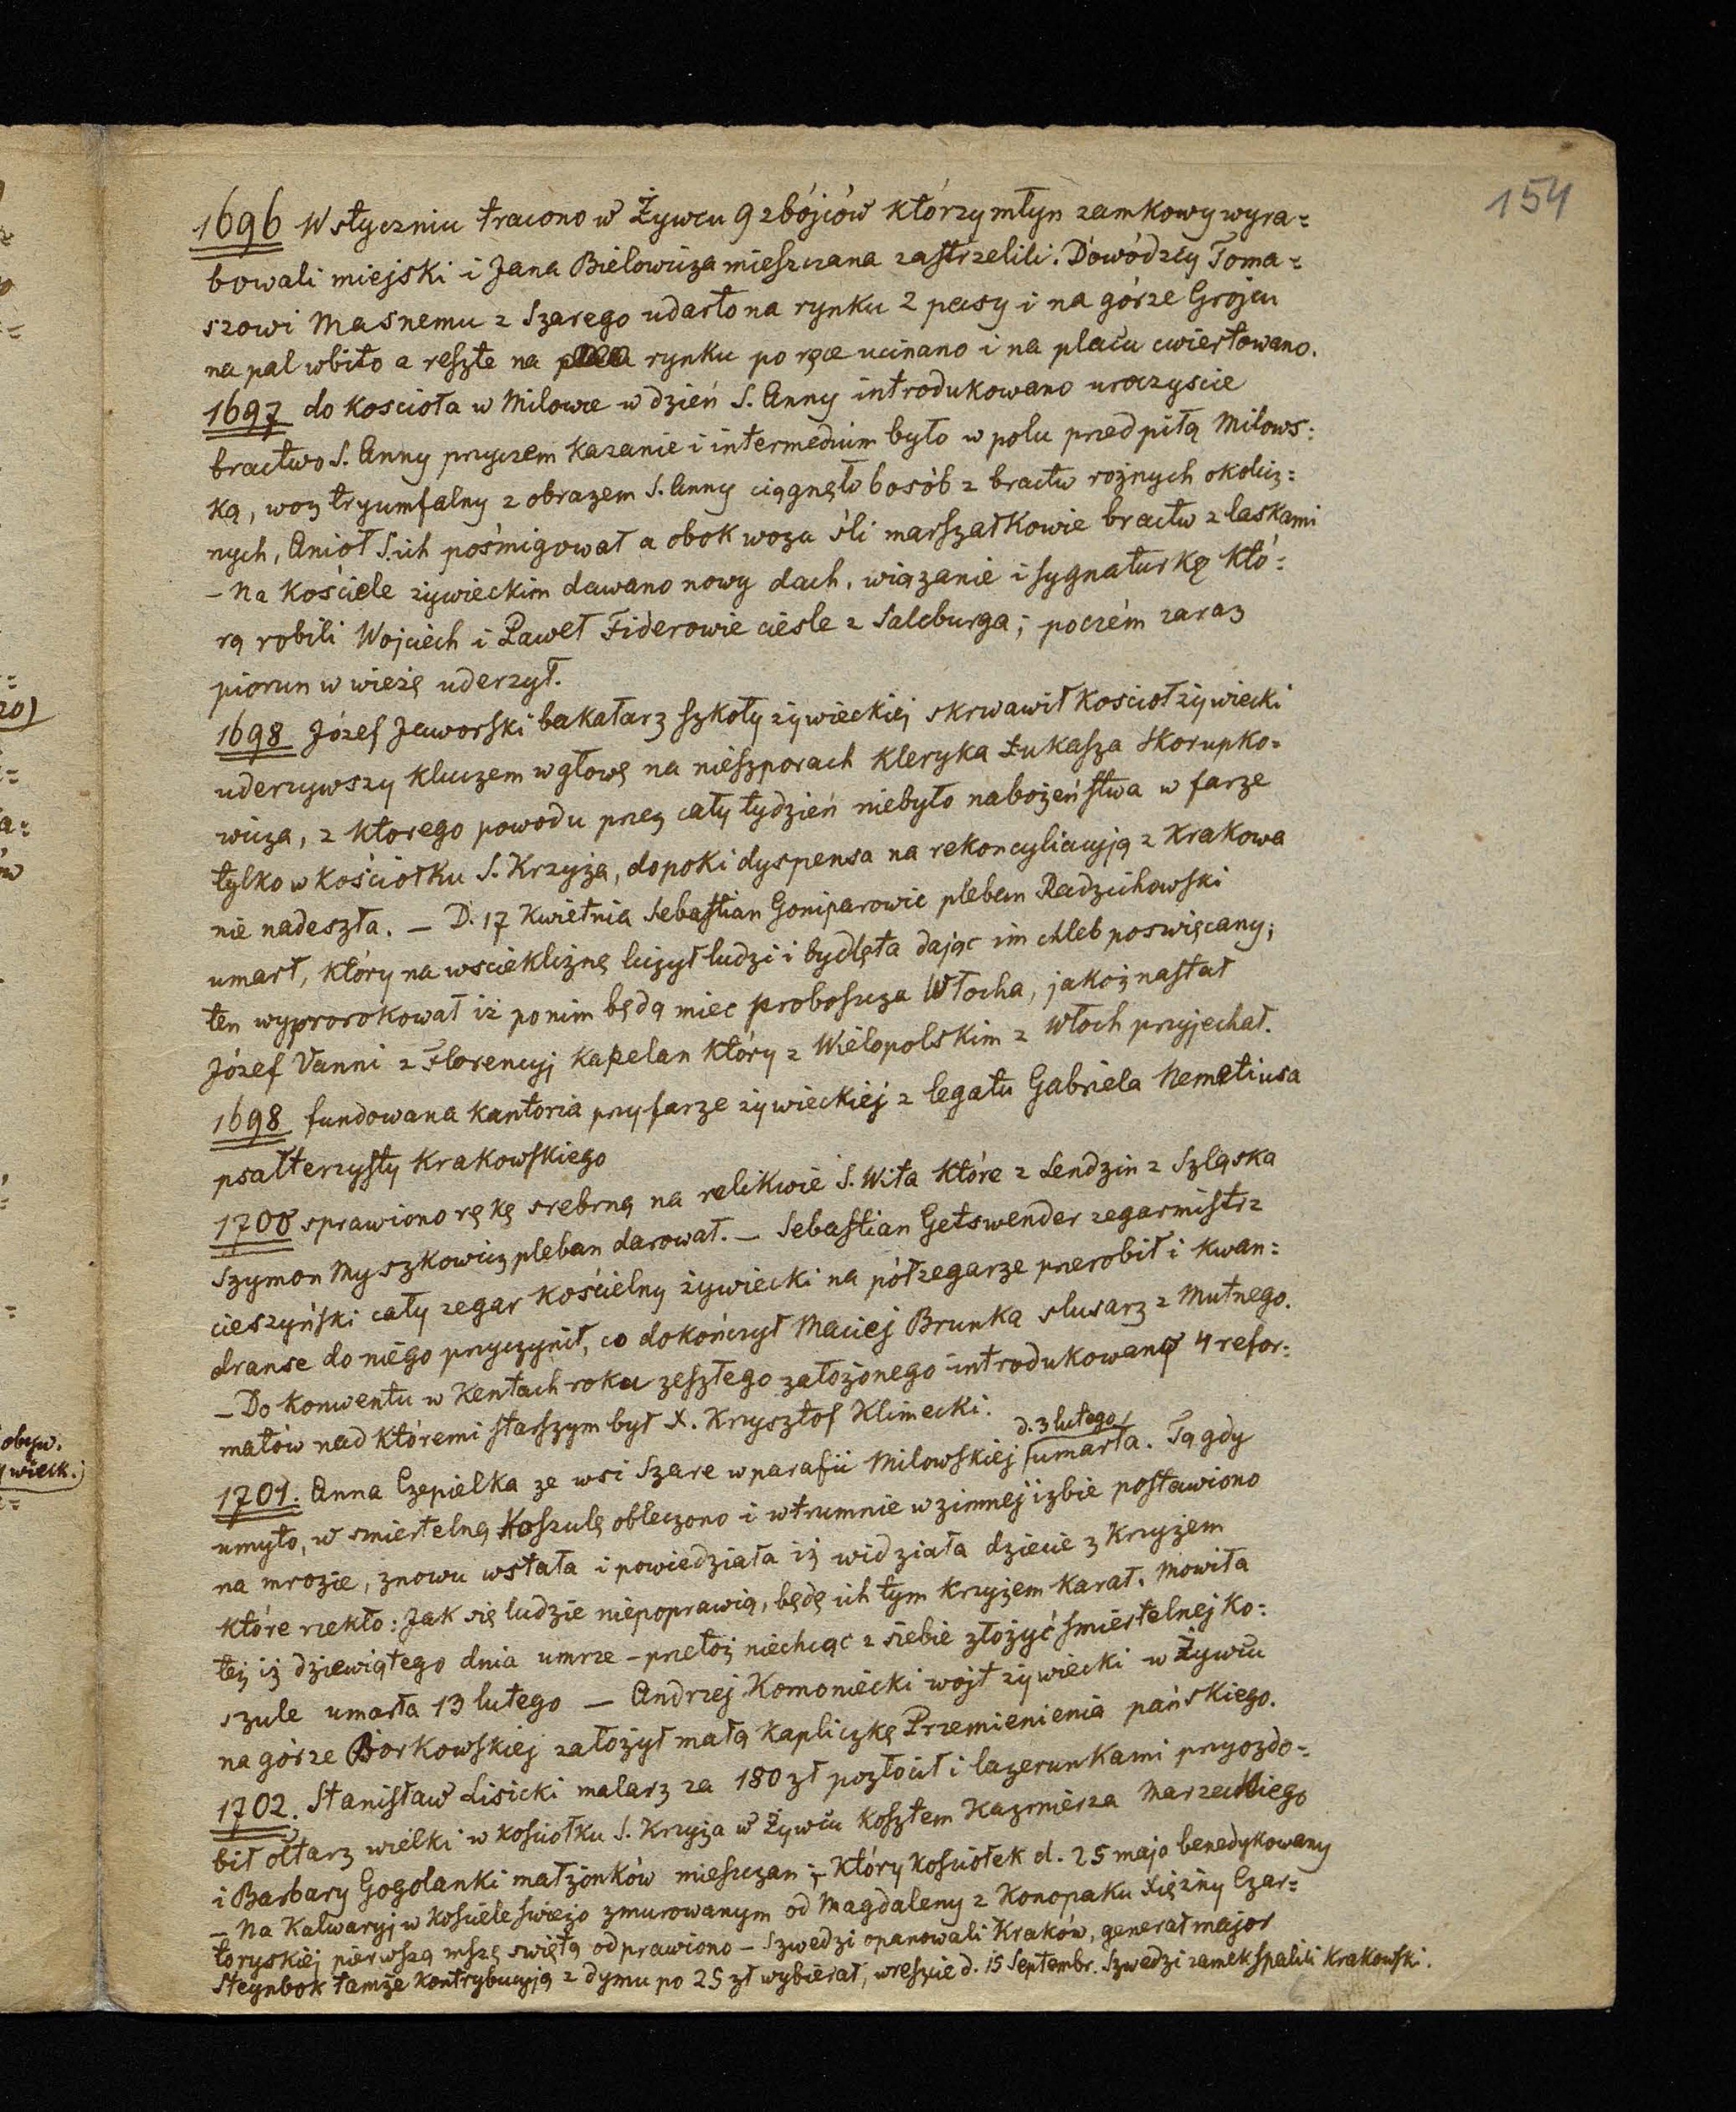 154
1696 W styczniu tracono w Żywcu 9 zbójców którzy młyn zamkowy wyra=
bowali miejski i Jana Bielowicza mieszczana zastrzelili. Dowódzcy Toma=
szowi Masnemu z Szarego udarto na rynku 2 pasy i na górze Grojcu
na pal wbito a resztę na rynku po ręce ucinano i na placu cwiertowano.
1697 do kościoła w Milowce w dzień S. Anny introdukowano uroczyscie
bractwo S. Anny przyczem kazanie i intermedium było w polu przed piłą Milows=
ką, woz tryumfalny z obrazem S. Anny ciągnęło 6 osób z bractw rożnych okolicz=
nych, Anioł S. ich pośmigował a obok woza śli marszałkowie bractw z laskami
– Na kościele żywieckim dawano nowy dach, wiązanie i sygnaturkę któ=
rą robili Wojciech i Paweł Fiderowie ciesle z Salcburga; poczém zaraz
piorun w wieżę uderzył.
1698 Józef Jaworski bakałarz szkoły żywieckiej skrwawił kosciół żywiecki
uderzywszy kluczem w głowę na nieszporach kleryka Łukasza Skorupko=
wicza, z ktorego powodu przez cały tydzień niebyło nabożeństwa w farze
tylko w kościołku S. Krzyża, dopoki dyspensa na rekoncyliacyją z Krakowa
nie nadeszła. – D. 17 Kwietnia Sebastian Goniparowic pleban Radziechowski
umarł, który na wscieklizną liczył ludzi i bydlęta dając im chleb poswięcany;
ten wyprorokował iż po nim będą miec proboszcza Włocha, jakoż nastał
Józef Vanni z Florencyj kapelan który z Wielopolskim z Włoch przyjechał.
1698 fundowana kantoria przy farze żywieckiéj z legatu Gabriela Nemetiusa
psałterzysty Krakowskiego
1700 sprawiono rękę srebrną na relikwie S. Wita które z Lendzin z Szląska
Szymon Myszkowicz pleban darował. – Sebastian Getswender zegarmistrz
cieszyński cały zegar kościelny żywiecki na półzegarze przerobił i kwan=
dranse do niego przyczynił, co dokończył Maciej Brunka slusarz z Mutnego.
– Do konwentu w Kentach roku zeszłego założonego introdukowano 4 refor=
matów nad któremi starszym był X. Krzysztof Klimecki.
d. 3 lutego
1701. Anna Czepielka ze wsi Szare w parafii Milowskiej umarła. Tą gdy
umyto, w smiertelną koszulę obleczono i w trumnie w zimnej izbie postawiono
na mrozie, znowu wstała i powiedziała iż widziała dziecie z krzyżem
które rzekło: Jak się ludzie niepoprawią, będę ich tym krzyżem karał. Mowiła
też iż dziewiątego dnia umrze – przetoż niechcąc z siebie złożyć smiertelnej ko=
szule umarła 13 lutego – Andrzej Komoniecki wojt żywiecki w Żywcu
na górze Borkowskiej założył małą kapliczkę Przemienienia pańskiego.
1702. Stanisław Lisicki malarz za 180 zł pozłocił i lazerunkami przyozdo=
bił ołtarz wielki w kosciołku S. Krzyża w Żywcu kosztem Kazmierza Marzeckiego
i Barbary Gogolanki małżonków mieszczan; – który kosciołek d. 25 maja benedykowany
– Na Kalwaryj w kosciele swieżo zmurowanym od Magdaleny z Konopaku Xiężny Czar=
toryskiéj pierwszą mszę swiętą odprawiono – Szwedzi opanowali Kraków, generał major
Steynbok tamże kontrybucyją z dymu po 25 zł wybierał, wreszcie d. 15 Septembr. Szwedzi zamek spalili Krakowski.
obyw.
wieck.